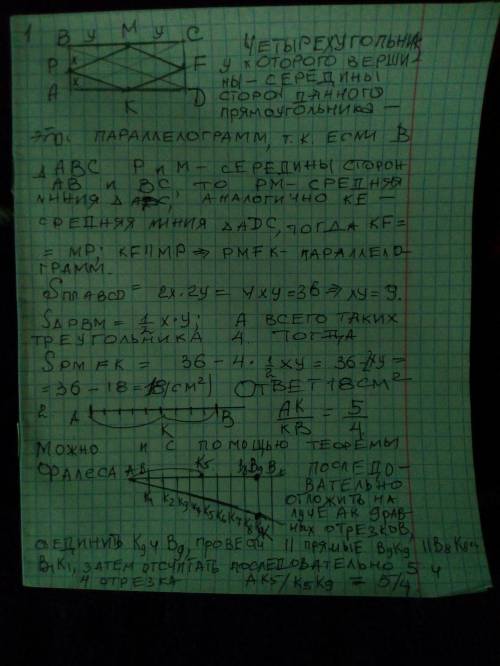 1
B y M y C
P x x F
A K D
ЧЕТЫРЕХУГОЛЬНИК
У КОТОРОГО ВЕРШИ-
НЫ - СЕРЕДИНЫ
СТОРОН ДАННОГО
ПРЯМОУГОЛЬНИКА -
ЭТО ПАРАЛЛЕЛОГРАММ, Т.К. ЕСЛИ В
△ABC P и M - СЕРЕДИНЫ СТОРОН
AB И BC, ТО PM - СРЕДНЯЯ
ЛИНИЯ △ABC, АНАЛОГИЧНО KF -
СРЕДНЯЯ ЛИНИЯ △ADC, ТОГДА KF=
= MP; KF || MP ⇒ PMFK - ПАРАЛЛЕЛО-
ГРАММ.
Sпр ABCD = 2x·2y = 4xy = 36 ⇒ xy = 9.
S△PBM = 1/2 x·y; А ВСЕГО ТАКИХ
ТРЕУГОЛЬНИКА 4. ТОГДА
SPMFK = 36 - 4·1/2 xy = 36 - 2xy =
= 36 - 18 = 18 (см²) ОТВЕТ 18 СМ²
2. A K B AK/KB = 5/4
МОЖНО И С ПОМОЩЬЮ ТЕОРЕМЫ
ФАЛЕСА ПОСЛЕДО-
ВАТЕЛЬНО
ОТЛОЖИТЬ НА
ЛУЧЕ AK 9 РАВ-
НЫХ ОТРЕЗКОВ,
СОЕДИНИТЬ K9 И B9, ПРОВЕСТИ || ПРЯМЫЕ B9K9 || B8K8 И
B1K1, ЗАТЕМ ОТСЧИТАТЬ ПОСЛЕДОВАТЕЛЬНО 5 И
4 ОТРЕЗКА AK5/K5K9 = 5/4